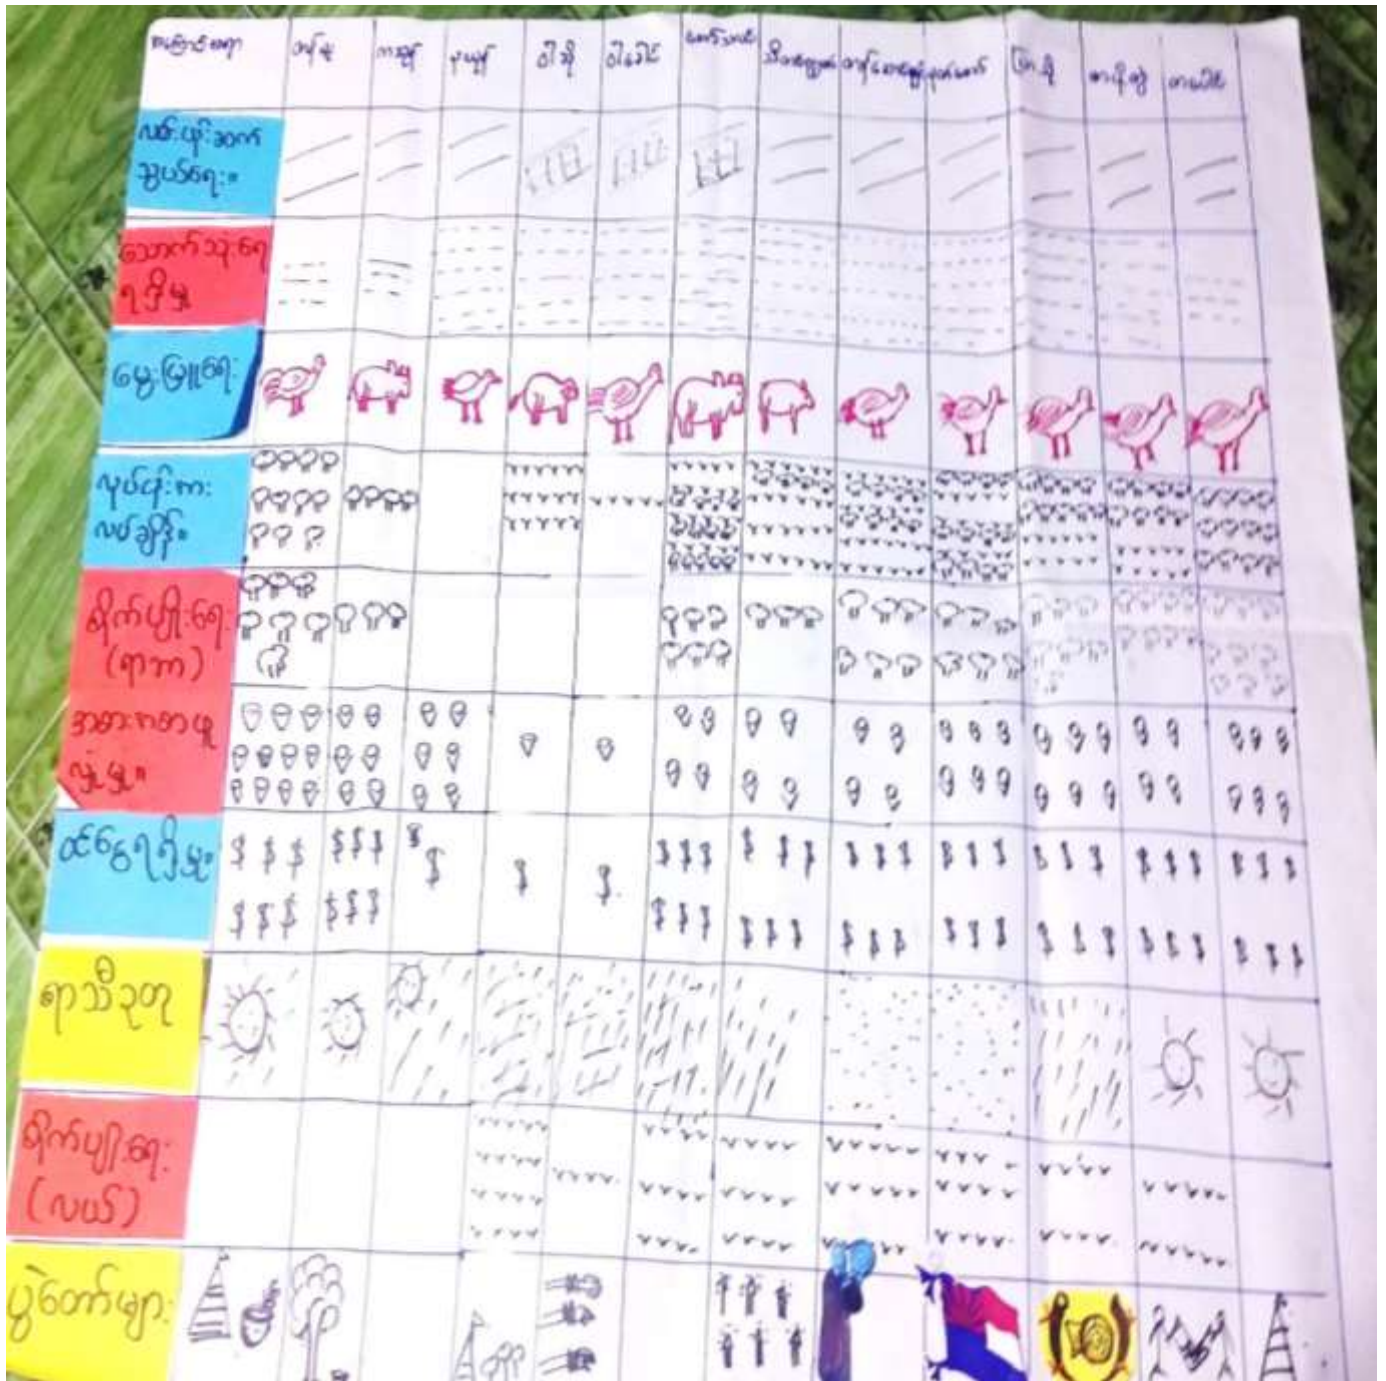 အကြောင်းအရာ တန်ခူး ကဆုန် နယုန် ဝါဆို ဝါခေါင် တော်သလင်း သီတင်းကျွတ် တန်ဆောင်မုန်း နတ်တော် ပြာသို တပို့တွဲ တပေါင်း
လမ်းပန်းဆက်
သွယ်ရေး။
သောက်သုံးရေ
ရရှိမှု
မွေးမြူရေး
လုပ်ငန်းကာ
လပ်ချိန်။
စိုက်ပျိုးရေး
(ရာဘာ)
အစားအစာဖူ
လှုံမှု။
ဝင်ငွေရရှိမှု။
ရာသီဥတု
စိုက်ပျိုးရေး
(လယ်)
ပွဲတော်များ